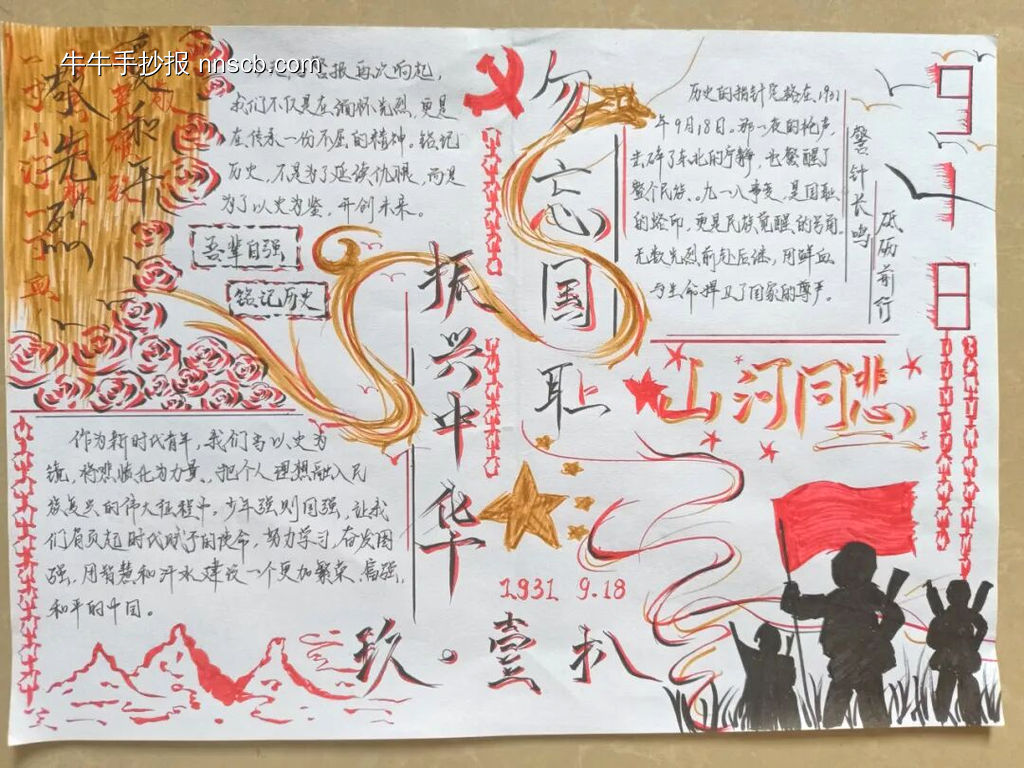 牛牛手抄报 nnscb.com
警报再次响起，
我们不仅是在缅怀先烈，更是
在传承一份不屈的精神。铭记
历史，不是为了延续仇恨，而是
为了以史为鉴，开创未来。
吾辈自强
铭记历史
先烈
和平
一寸山河一寸血
振兴中华
勿忘国耻
历史的指针定格在1931
年9月18日。那一夜的枪声，
击碎了东北的宁静，也惊醒了
整个民族。九一八事变，是国耻
的烙印，更是民族觉醒的号角。
无数先烈前赴后继，用鲜血
与生命捍卫了国家的尊严。
警钟长鸣
砥砺前行
九一八
山河同悲
作为新时代青年，我们当以史为
镜，将悲愤化为力量，把个人理想融入民
族复兴的伟大征程中。少年强则国强，让我
们肩负起时代赋予的使命，努力学习，奋发图
强，用智慧和汗水建设一个更加繁荣、富强、
和平的中国。
1931 9.18
玖·壹扒